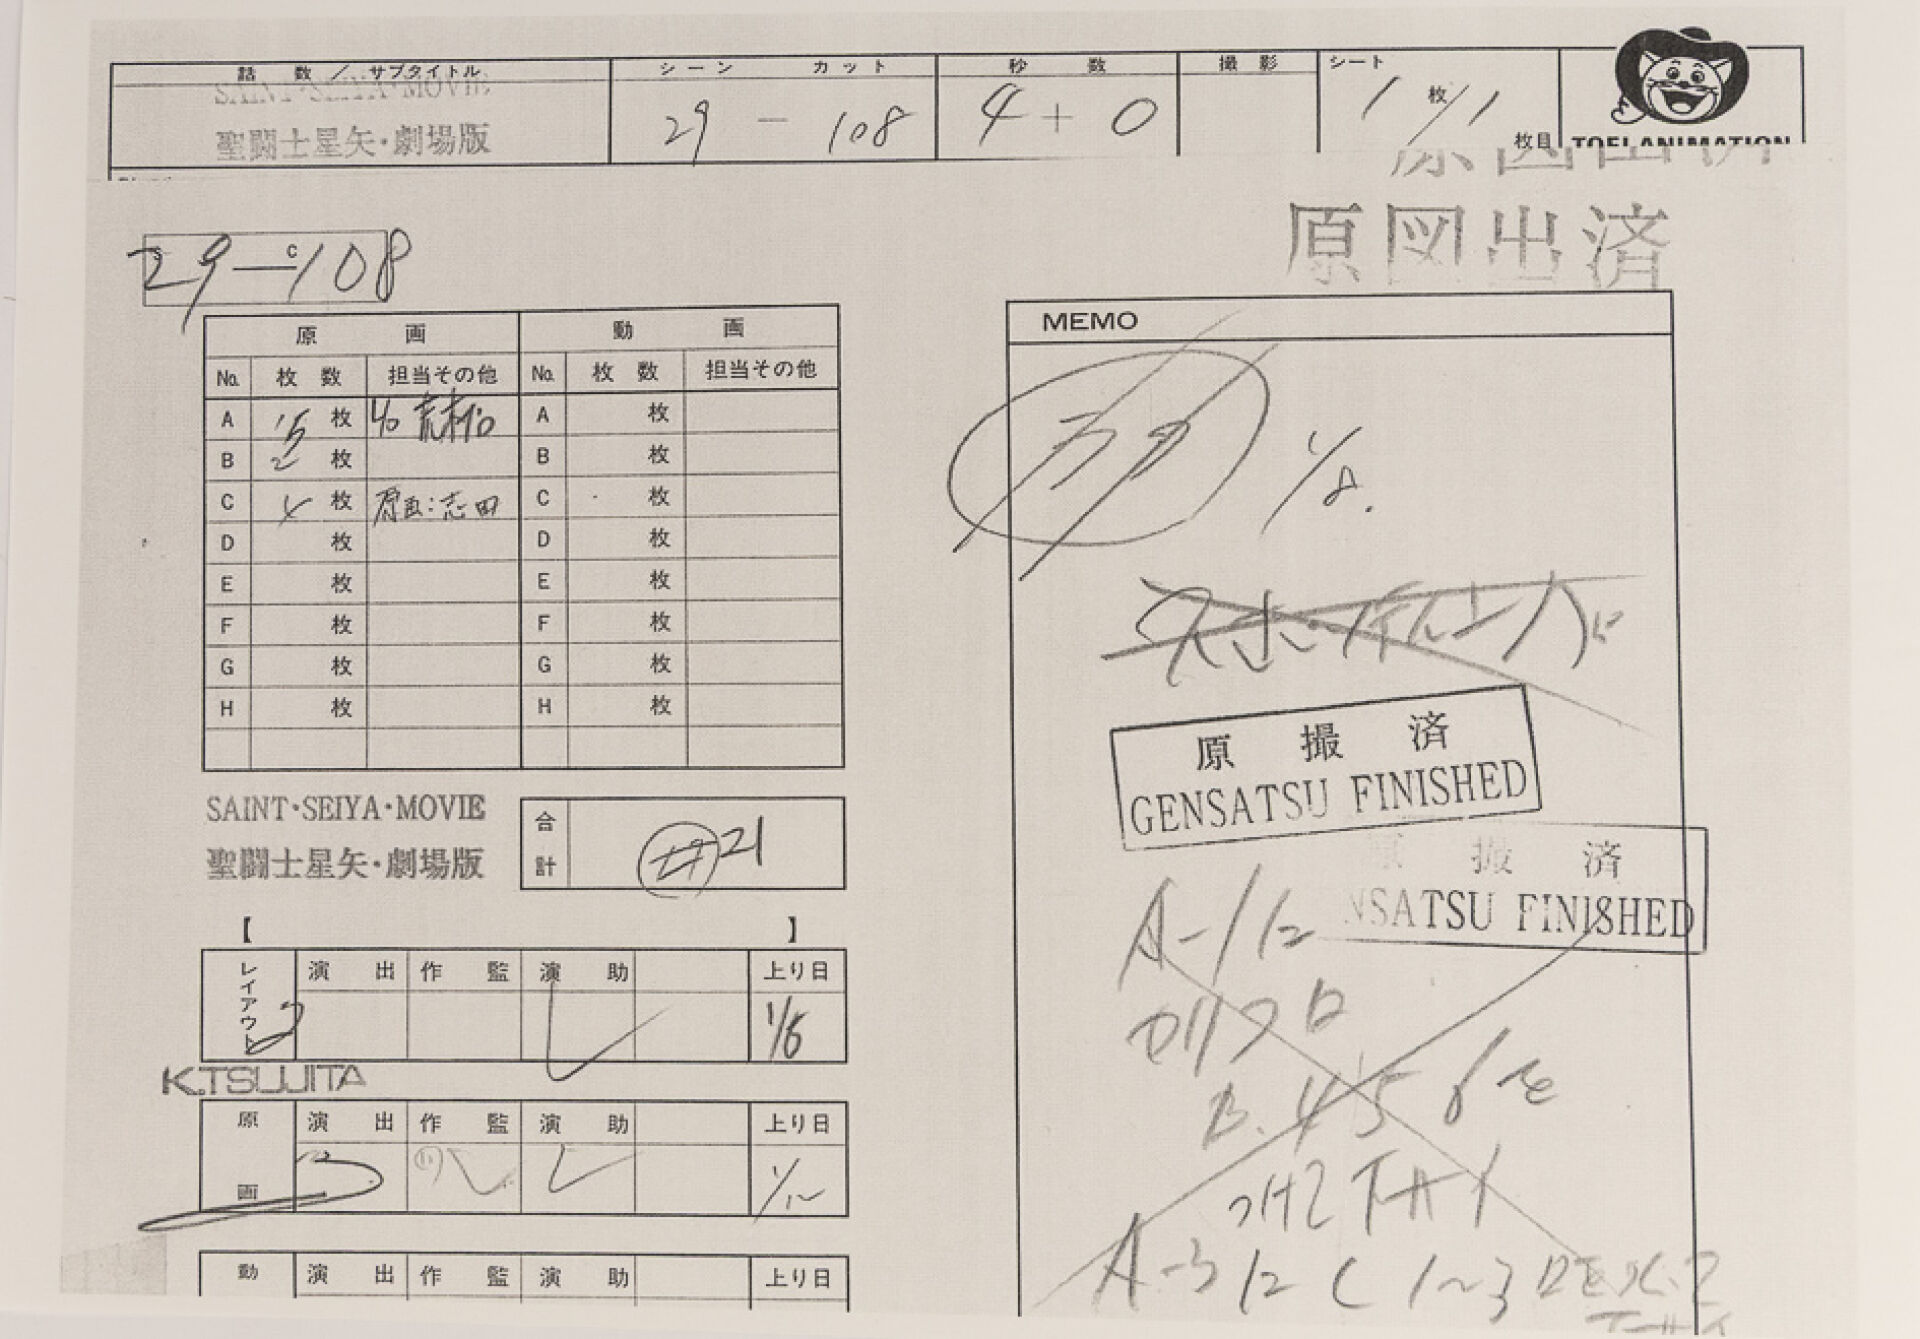 話 数 / サブタイトル シーン カット 秒 数 撮 影 シート
SAINT・SEIYA・MOVIE
聖闘士星矢・劇場版 29 - 108 4 + 0 1 枚/1 枚目
TOEI ANIMATION
原図出済
29 - C 108
MEMO
原 画 動 画
No. 枚 数 担当その他 No. 枚 数 担当その他
A 15 枚 A 枚
B 2 枚 B 枚
C 4 枚 原画:志田 C 枚
D 枚 D 枚
E 枚 E 枚
F 枚 F 枚
G 枚 G 枚
H 枚 H 枚
1/8.
原 撮 済
GENSATSU FINISHED
原 撮 済
NSATSU FINISHED
SAINT・SEIYA・MOVIE
聖闘士星矢・劇場版
合計 21
【 】
レイアウト 演 出 作 監 演 助 上り日
1/5
K.TSUJITA
原画 演 出 作 監 演 助 上り日
1/12
動 演 出 作 監 演 助 上り日
A-1に
セリフロ
B. 4 5 6 を
つけて下サイ
A-3に C 1~3